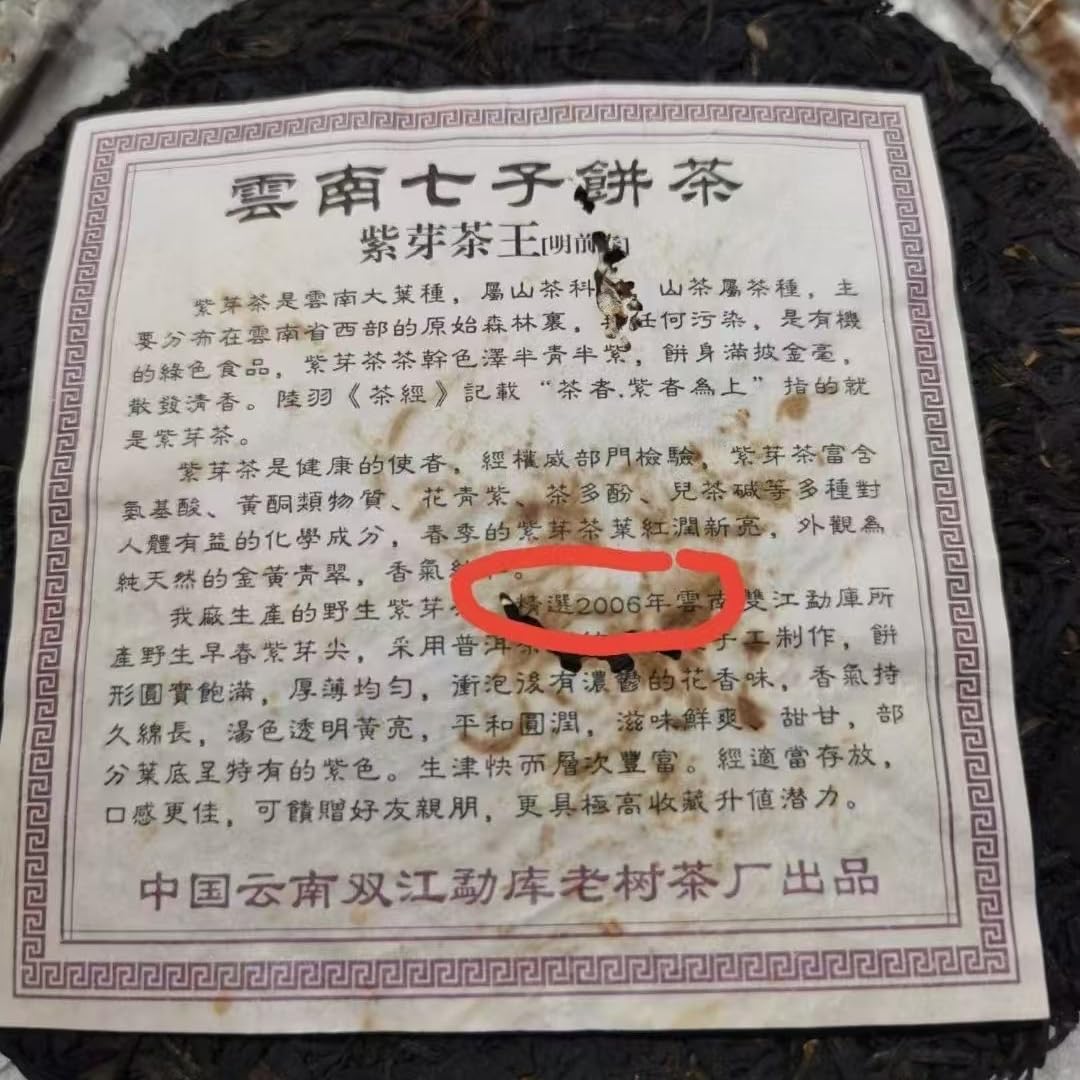 雲南七子餅茶
紫芽茶王[明前春]
紫芽茶是雲南大葉種，屬山茶科 山茶屬茶種，主
要分布在雲南省西部的原始森林裏， 任何污染，是有機
的綠色食品，紫芽茶茶幹色澤半青半紫，餅身滿披金毫，
散發清香。陸羽《茶經》記載“茶者.紫者為上”指的就
是紫芽茶。
紫芽茶是健康的使者，經權威部門檢驗，紫芽茶富含
氨基酸、黃酮類物質、花青紫、茶多酚、兒茶碱等多種對
人體有益的化學成分，春季的紫芽茶葉紅潤新亮，外觀為
純天然的金黃青翠，香氣 。
我廠生產的野生紫芽 精選2006年雲南雙江勐庫所
產野生早春紫芽尖，采用普洱 手工制作，餅
形圓實飽滿，厚薄均勻，衝泡後有濃鬱的花香味，香氣持
久綿長，湯色透明黃亮，平和圓潤，滋味鮮爽、甜甘，部
分葉底呈特有的紫色。生津快而層次豐富。經適當存放，
口感更佳，可饋贈好友親朋，更具極高收藏升值潛力。
中国云南双江勐库老树茶厂出品